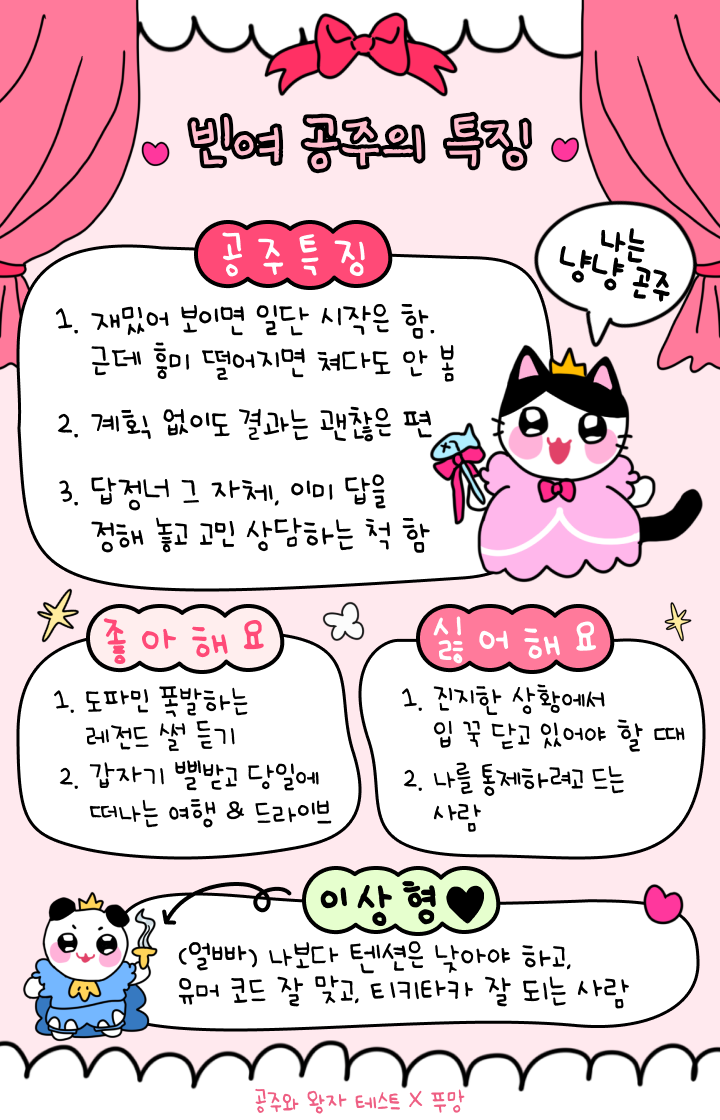 빈여 공주의 특징
나는
냥냥 곤주
공주특징
1. 재밌어 보이면 일단 시작은 함.
근데 흥미 떨어지면 쳐다도 안 봄
2. 계획 없이도 결과는 괜찮은 편
3. 답정너 그 자체, 이미 답을
정해 놓고 고민 상담하는 척 함
좋아해요
1. 도파민 폭발하는
레전드 썰 듣기
2. 갑자기 삘받고 당일에
떠나는 여행 & 드라이브
싫어해요
1. 진지한 상황에서
입 꾹 닫고 있어야 할 때
2. 나를 통제하려고 드는
사람
이상형♥
(얼빠) 나보다 텐션은 낮아야 하고,
유머 코드 잘 맞고, 티키타카 잘 되는 사람
공주와 왕자 테스트 X 푸망